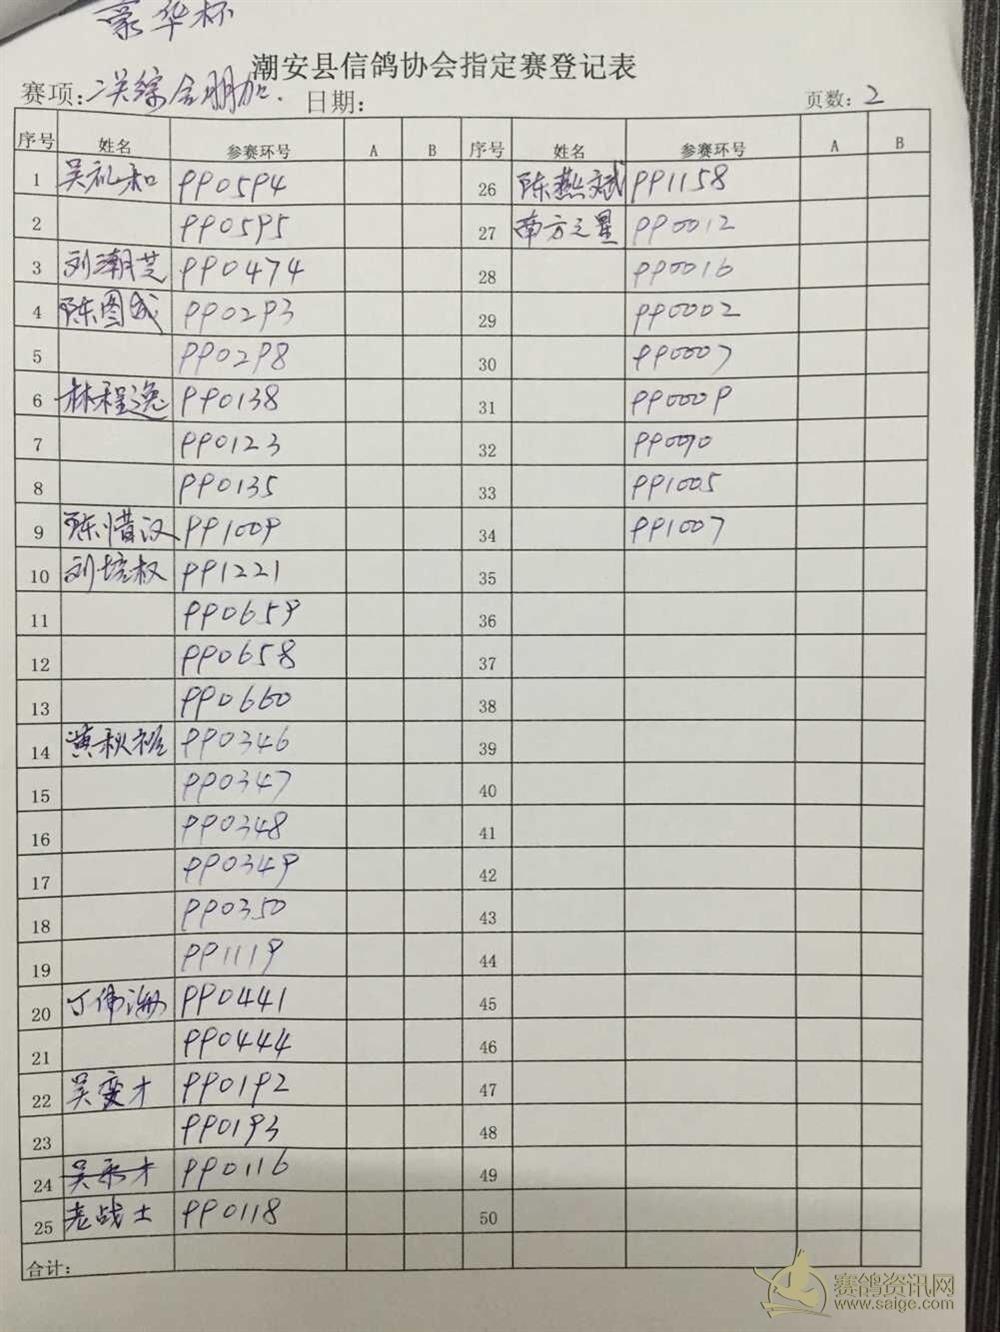 豪华杯
潮安县信鸽协会指定赛登记表
赛项: 二关综合朋加. 日期: 页数: 2
序号 姓名 参赛环号 A B 序号 姓名 参赛环号 A B
1 吴礼和 PP0594 26 陈燕斌 PP1158
2 PP0595 27 南方之星 PP0012
3 刘潮芝 PP0474 28 PP0016
4 陈图成 PP0293 29 PP0002
5 PP0298 30 PP0007
6 林程逸 PP0138 31 PP0009
7 PP0123 32 PP0090
8 PP0135 33 PP1005
9 陈惜汉 PP1009 34 PP1007
10 刘培权 PP1221 35
11 PP0659 36
12 PP0658 37
13 PP0660 38
14 黄秋 PP0346 39
15 PP0347 40
16 PP0348 41
17 PP0349 42
18 PP0350 43
19 PP1119 44
20 丁伟海 PP0441 45
21 PP0444 46
22 吴 才 PP0192 47
23 PP0193 48
24 PP0116 49
25 老战士 PP0118 50
合计:
赛鸽资讯网
www.saige.com